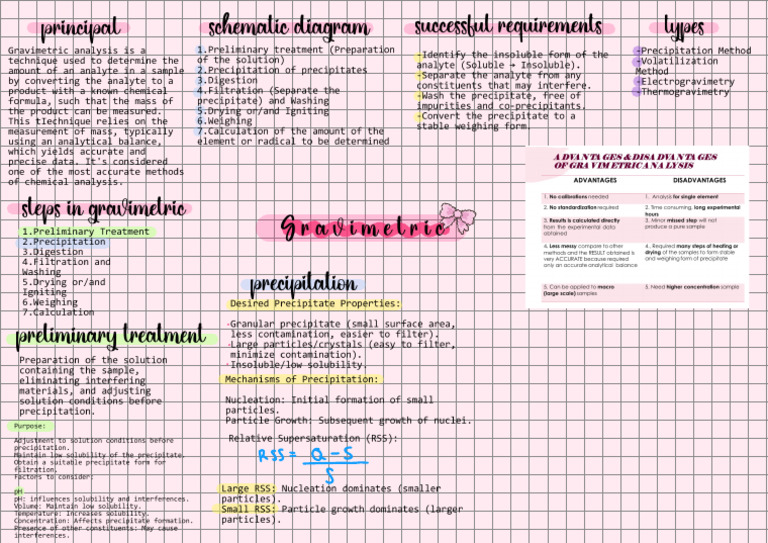 principal
Gravimetric analysis is a
technique used to determine the
amount of an analyte in a sample
by converting the analyte to a
product with a known chemical
formula, such that the mass of
the product can be measured.
This tIechnique relies on the
measurement of mass, typically
using an analytical balance,
which yields accurate and
precise data. It's considered
one of the most accurate methods
of chemical analysis.
schematic diagram
1.Preliminary treatment (Preparation
of the solution)
2.Precipitation of precipitates
3.Digestion
4.Filtration (Separate the
precipitate) and Washing
5.Drying or/and Igniting
6.Weighing
7.Calculation of the amount of the
element or radical to be determined
successful requirements
-Identify the insoluble form of the
analyte (Soluble → Insoluble).
-Separate the analyte from any
constituents that may interfere.
-Wash the precipitate, free of
impurities and co-precipitants.
-Convert the precipitate to a
stable weighing form.
types
-Precipitation Method
-Volatilization
Method
-Electrogravimetry
-Thermogravimetry
ADVANTAGES & DISADVANTAGES
OF GRAVIMETRIC ANALYSIS
ADVANTAGES DISADVANTAGES
1. No calibrations needed 1. Analysis for single element
2. No standardization required 2. Time consuming, long experimental
hours
3. Results is calculated directly 3. Minor missed step will not
from the experimental data produce a pure sample
obtained
4. Less messy compare to other 4. Required many steps of heating or
methods and the RESULT obtained is drying of the samples to form stable
very ACCURATE because required and weighing form of precipitate
only an accurate analytical balance
5. Can be applied to macro 5. Need higher concentration sample
(large scale) samples
steps in gravimetric
1.Preliminary Treatment
2.Precipitation
3.Digestion
4.Filtration and
Washing
5.Drying or/and
Igniting
6.Weighing
7.Calculation
Gravimetric
preliminary treatment
Preparation of the solution
containing the sample,
eliminating interfering
materials, and adjusting
solution conditions before
precipitation.
Purpose:
Adjustment to solution conditions before
precipitation.
Maintain low solubility of the precipitate.
Obtain a suitable precipitate form for
filtration.
Factors to consider:
pH
pH: influences solubility and interferences.
Volume: Maintain low solubility.
Temperature: Increases solubility.
Concentration: Affects precipitate formation.
Presence of other constituents: May cause
interferences.
precipitation
Desired Precipitate Properties:
·Granular precipitate (small surface area,
less contamination, easier to filter).
·Large particles/crystals (easy to filter,
minimize contamination).
·Insoluble/low solubility.
Mechanisms of Precipitation:
Nucleation: Initial formation of small
particles.
Particle Growth: Subsequent growth of nuclei.
Relative Supersaturation (RSS):
RSS = Q - S
S
Large RSS: Nucleation dominates (smaller
particles).
Small RSS: Particle growth dominates (larger
particles).